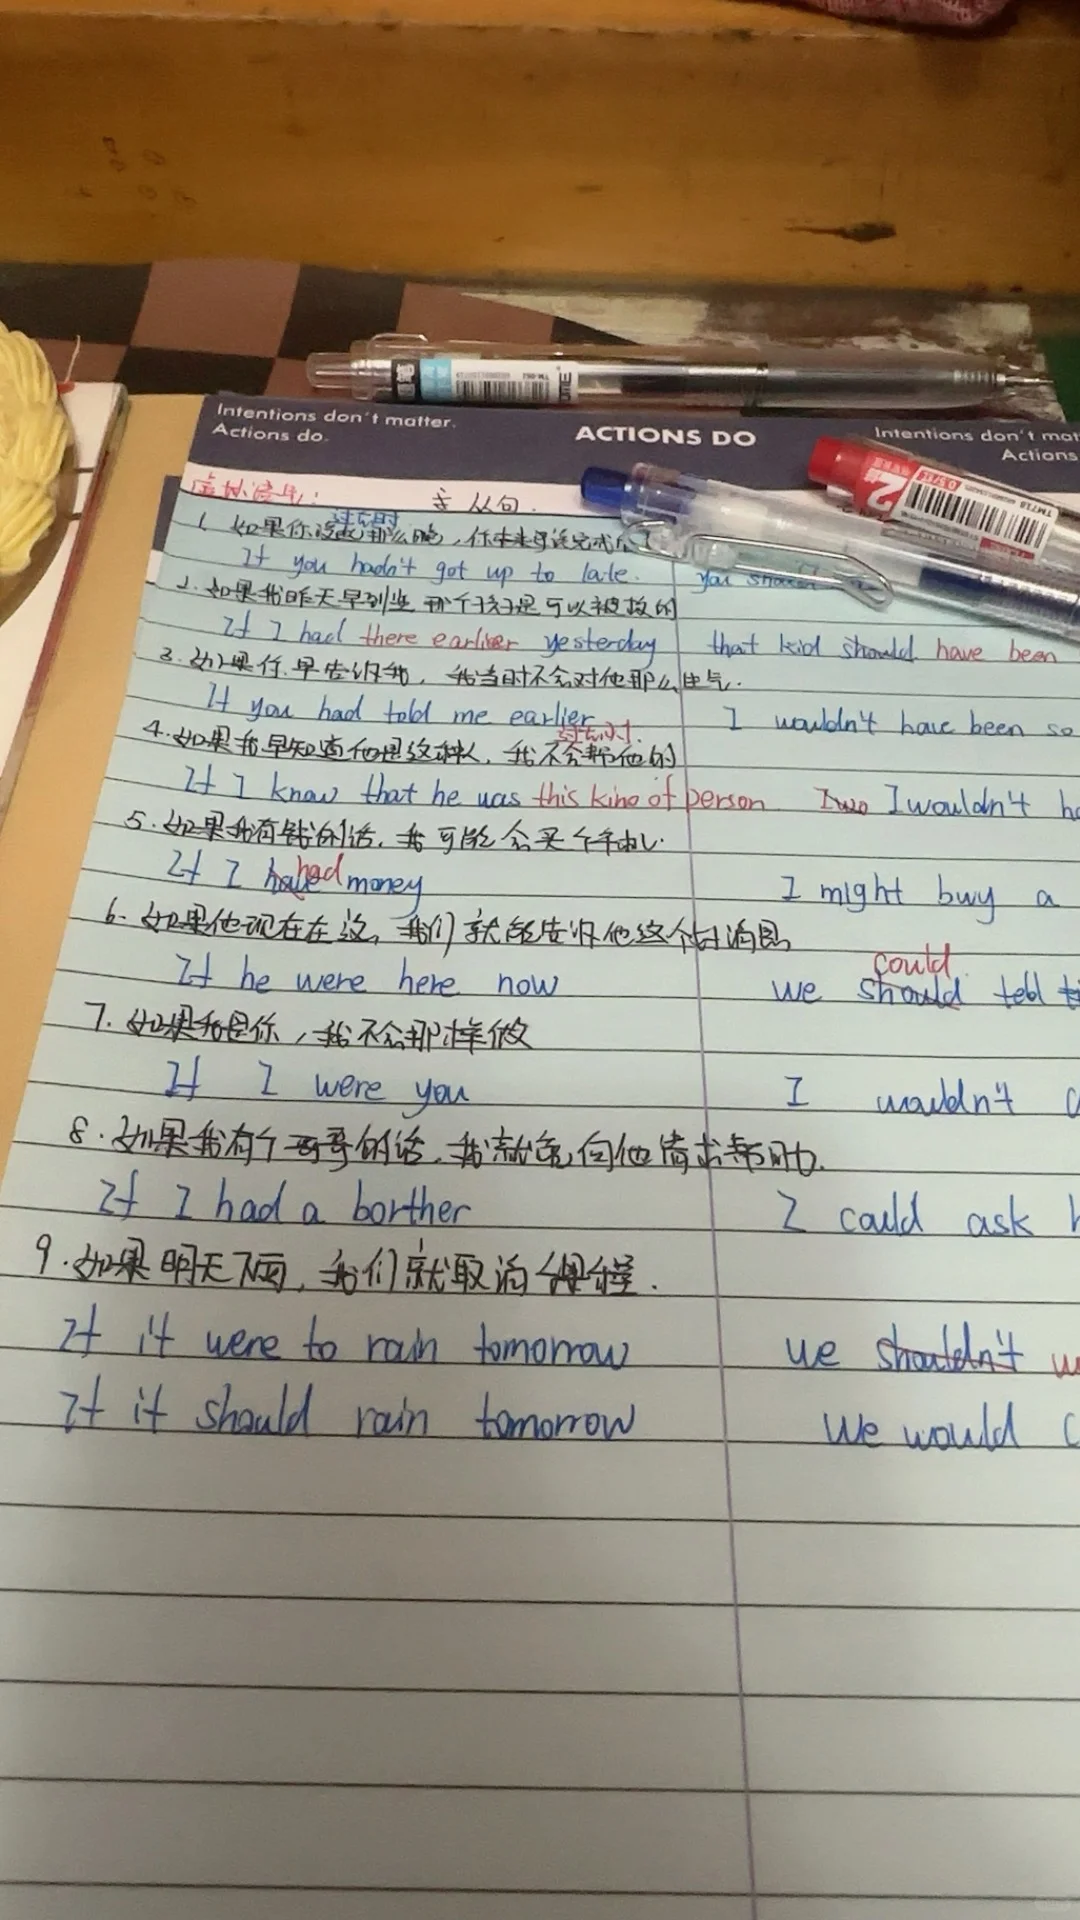 Intentions don't matter.
Actions do.
ACTIONS DO
Intentions don't mat
Actions
虚拟语气: 主 从句.
过去时
1. 如果你没起那么晚,你本来可该完成
If you hadn't got up to late. you
2. 如果我昨天早到 那个孩子是可以被救的
If I had there earlier yesterday that kid should have been
3. 如果你早告诉我,我当时不会对他那么生气.
If you had told me earlier I wouldn't have been so
过去时.
4. 如果我早知道他是这种人,我不会帮他的
If I know that he was this kind of person I wouldn't
5. 如果我有钱的话,我可能会买个手机.
had
If I have money I might buy a
6. 如果他现在在这,我们就能告诉他这个消息
could
If he were here now we should tell
7. 如果我是你,我不会那样做
If I were you I wouldn't
8. 如果我有个哥哥的话,我就能向他请求帮助.
If I had a borther I could ask h
9. 如果明天下雨,我们就取消课程.
If it were to rain tomorrow we shouldn't
If it should rain tomorrow We would C